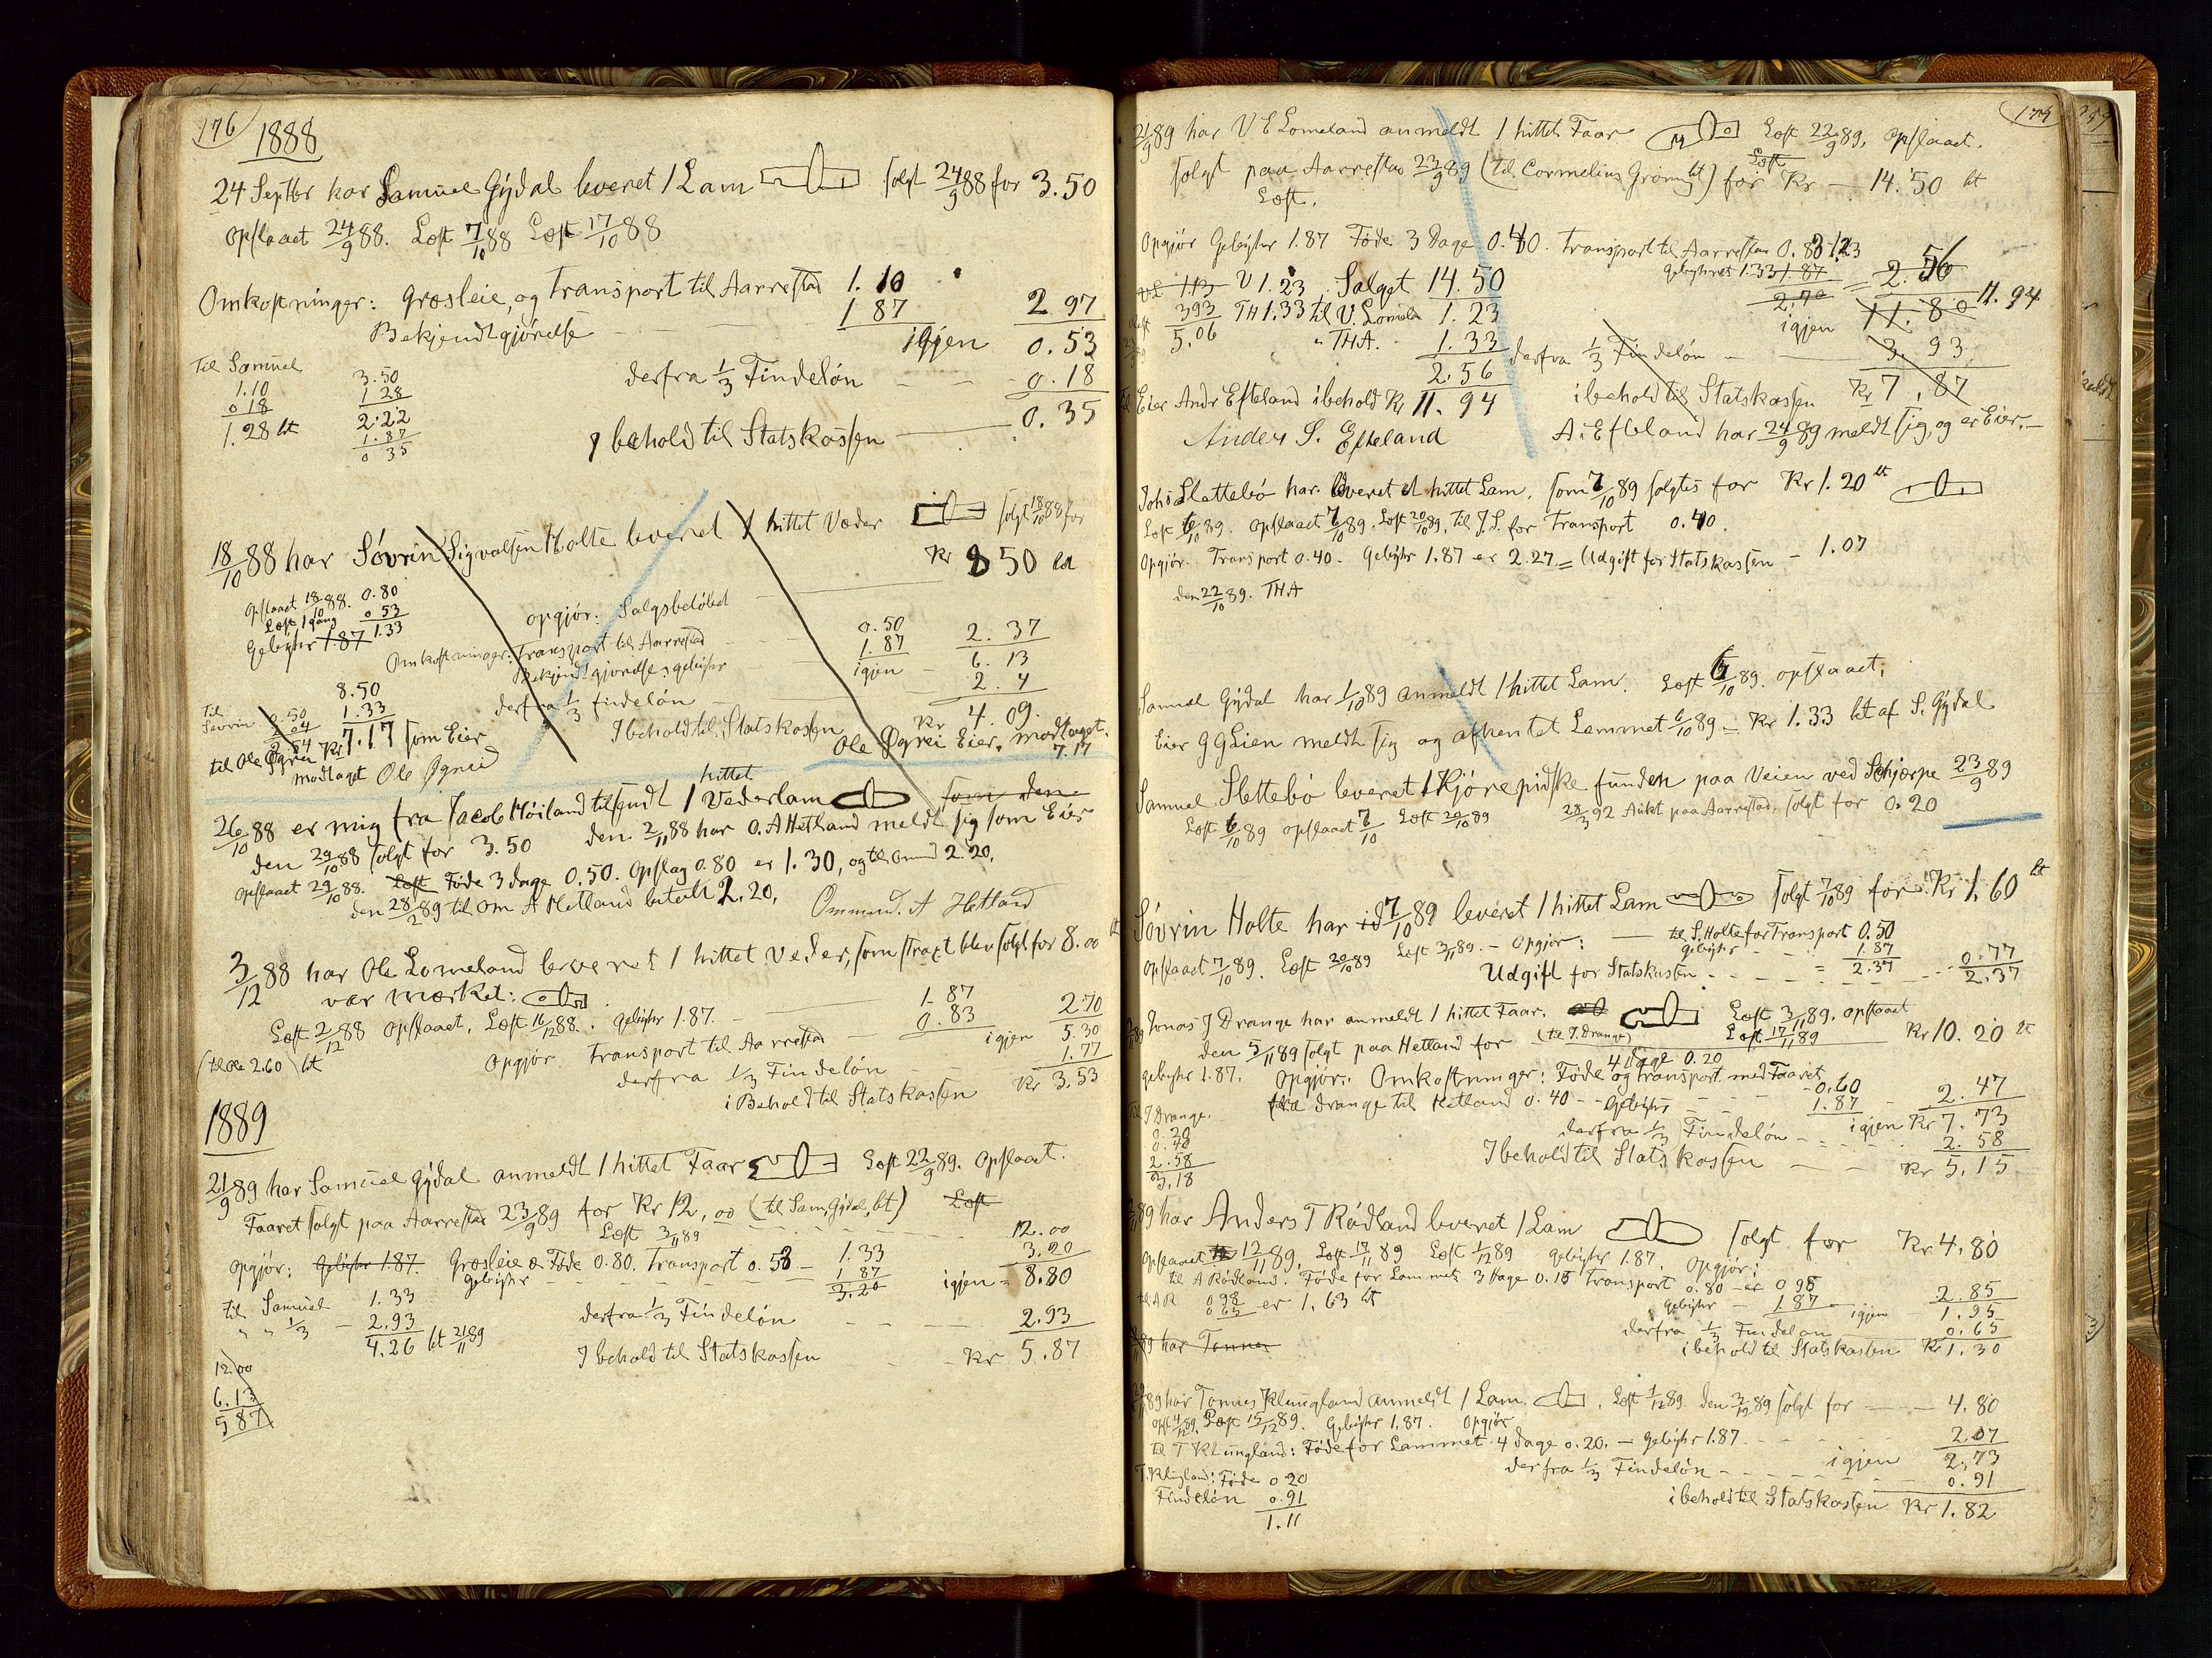 176
1888
24 Septbr har Samuel Gÿdal leveret 1 Lam solgt 24/9 88 for 3.50
opslaaet 24/9 88. Læst 7/10 88 Læst 17/10 88
Omkostninger: Græsleie, og Transport til Aarrestad 1.10
Bekjendtgjørelse 1 87 2 97
igjen 0.53
derfra 1/3 Findeløn 0.18
I behold til Statskassen 0.35
Til Samuel
1.10
0 18
1.28 bt
3.50
1 28
2.22
1.87
0 35
18/10 88 har Søvrin Sigvalsen Holte leveret 1 hittet Væder solgt 18/10 88 for
Kr 8 50 bt
opslaaet 18/10 88. 0.80
Læst 1 gang 0 53
Gebyhr 1.87 1.33
opgjør: Salgsbeløbet
Omkostninger: Transport til Aarrestad 0.50
Bekjendtgjørelse gebyhr 1.87 2.37
igjen 6.13
derfra 1/3 findeløn 2.4
I behold til Statskassen Kr 4.09.
8.50
1.33
7.17
Til Søvrin 0.50
2.04
2.54
til Ole Øgrei Kr 7.17 som Eier
modtaget Ole Øgreid
Ole Øgrei Eier. modtaget. 7.17
26/10 88 er mig fra Jacob Høiland tilsendt 1 hittet Væderlam som den
den 29/10 88 solgt for 3.50 den 2/11 88 har O. A Hetland meldt sig som Eier
opslaaet 29/10 88. Læst Føde 3 dage 0.50. Opslag 0.80 er 1.30, og til Omund 2.20.
den 28/2 89 til Om A Hetland betalt 2.20.
Ommund. A Hetland
3/12 88 har Ole Lomeland leveret 1 hittet Veder, som straxt blev solgt for 8.00 bt
var mærket:
Læst 2/12 88 opslaaet, Læst 16/12 88. Gebyhr 1.87. 1.87
Opgjør Transport til Aarrestad 0.83 2.70
igjen 5.30
(til Ole 2.60) bt
derfra 1/3 Findeløn 1.77
i Behold til Statskassen Kr 3.53
1889
21/9 89 har Samuel Gÿdal anmeldt 1 hittet Faar Læst 22/9 89. Opslaaet.
Faaret solgt paa Aarrestad 23/9 89 for Kr 12,00 (til Sam, Gÿdal, bt) Læst
Læst 3/11 89 12.00
opgjør: Gebyhr 1.87. Græsleie & Føde 0.80. Transport 0.53 1.33
gebyhr 1 87 3.20
3.20 igjen = 8.80
til Samuel 1.33
" " 1/3 2.93
4.26 bt 21/11 89
derfra 1/3 Findeløn 2.93
I behold til Statskassen Kr 5.87
12.00
6.13
5 87
175
21/9 89 har V E Lomeland anmeldt 1 hittet Faar Læst 22/9 89, opslaaet.
solgt paa Aarrestad 23/9 89 (til Cornelius bt) for Kr 14.50 bt
Læst.
Opgjør Gebyhr 1.87 Føde 3 Dage 0.40. Transport til Aarrestad 0.83 1.23
gebyhret 1.33 1.87
2.70 = 2.56
igjen 11.80 11.94
V.L 1.13 V 1.23 Salget 14.50
3 93 TH 1.33 til V. Lomela 1.23
5.06 " THA. 1.33
2.56
derfra 1/3 Findeløn 3.93
i behold til Statskassen Kr 7,87
til Eier Andr Efteland i behold Kr 11.94
Anders S. Efteland
A. Efteland har 24/9 89 meldt sig, og er Eier.
Johs Slattebø har leveret et hittet Lam, som 7/10 89 solgtes for Kr 1.20 bt
Læst 6/10 89. opslaaet 7/10 89. Læst 20/10 89. til J.S. for Transport 0.40.
Opgjør. Transport 0.40. Gebyhr 1.87 er 2.27 = Udgift for Statskassen 1.07
den 22/10 89. THA
Samuel Gÿdal har 1/10 89 anmeldt 1 hittet Lam. Læst 6/10 89. opslaaet;
Eier G G Lien meldt sig og afhentet Lammet 6/10 89 = Kr 1.33 bt af S. Gÿdal
Samuel Slettebø leveret 1 Kjørepidske funden paa Veien ved Schjærpe 23/9 89
Læst 6/10 89 opslaaet 7/10 Læst 20/10 89 28/3 92 Aukt paa Aarrestad solgt for 0.20
Søvrin Holte har 7/10 89 leveret 1 hittet Lam solgt 7/10 89 for Kr 1.60 bt
opslaaet 7/10 89. Læst 20/10 89 Læst 3/11 89. - Opgjør: til S. Holte for Transport 0.50
gebyhr 1.87 0.77
Udgift for Statskassen = 2.37 2.37
Jonas J Drange har anmeldt 1 hittet Faar. Læst 3/11 89. opslaaet
den 5/11 89 solgt paa Hetland for (til J. Drange) Læst 17/11 89 Kr 10.20 bt
4 dage 0.20
gebyhr 1.87. Opgjør. Omkostninger: Føde og transport med Faaret
fra Drange til Hetland 0.40 0.60
Gebyhr 1.87 2.47
igjen Kr 7.73
derfra 1/3 Findeløn 2.58
I behold til Statskassen Kr 5,15
Til J Drange.
0.20
0.40
2.58
3.18
89 har Anders T Rødland leveret 1 Lam solgt for Kr 4.80
Opslaaet 12/11 89, Læst 17/11 89 Læst 1/12 89 gebyhr 1.87. Opgjør:
til A Rødland. Føde for Lammet 3 Dage 0.18 transport 0.80 er 0.98
gebyhr 1.87 2.85
igjen 1.95
til A R 0.98
0 65 er 1.63 bt
derfra 1/3 Findeløn 0.65
i behold til Statskassen Kr 1.30
89 har Tønnes
89 har Tønnes Klungland anmeldt 1 Lam. Læst 1/12 89 den 3/12 89 solgt for 4.80
opsl 4/12 89. Læst 15/12 89. Gebyhr 1.87. Opgjør
til T Klungland: Føde for Lammet 4 dage 0.20. - Gebyhr 1.87 2.07
igjen 2.73
derfra 1/3 Findeløn 0.91
i behold til Statskassen Kr 1.82
T. Klungland: Føde 0 20
Findeløn 0.91
1.11